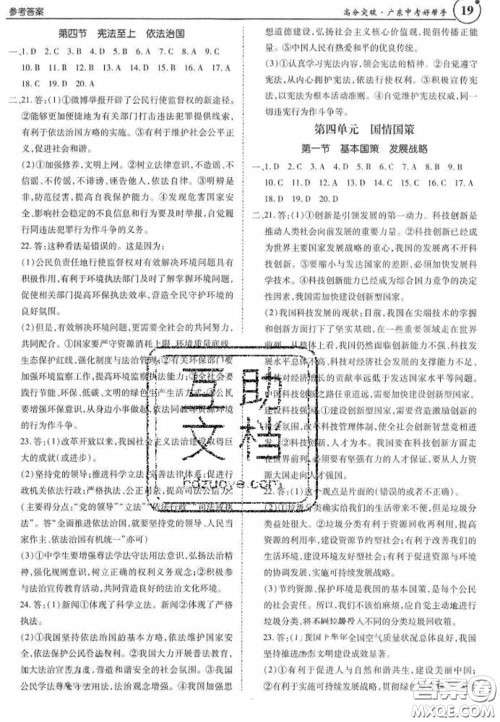 参考答案
高分突破·广东中考好帮手 19
第四节 宪法至上 依法治国
一、1. D 2. C 3. D 4. C 5. C 6. D 7. D 8. A 9. D
10. B 11. D 12. D 13. D 14. D 15. C 16. A 17. C
18. D 19. C 20. D
二、21. 答：(1)①微博举报开辟了公民行使监督权的新途径。
②能够更加便捷地为有关部门打击违法犯罪提供线索，
有利于依法治国方略的实施。③有利于维护社会公平正
义，促进社会和谐。
(2)①加强修养，文明上网。②树立法律意识，不造谣、不
信谣、不传谣、不诽谤、诬告他人，依法自律。③明辨是
非，防范侵害，提高自我保护能力。④发现危害国家安
全，影响社会稳定的不良信息和行为要及时举报，自觉履
行同违法犯罪行为作斗争的义务。
22. 答：这种看法是错误的。这是因为：
(1)公民负责任地行使监督权对有效解决环境问题具有
积极作用，有利于环境执法部门及时了解掌握环境问题，
促使相关部门提高环保执法效率，营造全民守护环境的
良好氛围。
(2)但是，有效解决环境问题，更需要全社会的共同努力，
共同配合。①国家要严守资源消耗上限、环境质量底线、
生态保护红线，强化制度与法治管理。②有关环保部门要
加强环境监察工作，提高环境监察执法能力；③全社会要
践行节能、环保、低碳、文明的绿色生产生活方式；④公民
要增强环保意识，从身边小事做起，依法同破坏资源环境
的行为作斗争。
23. 答：(1)改革开放以来，我国社会主义法治建设取得巨
大的成就(或进步)。
(2)坚持党的领导；推进科学立法，完善法律体系；促进行
政机关依法行政；严格执法、公正司法，提高司法公信力。
(主要得分点：“党的领导”“立法”“依法行政”“司法或执
法”。答“全面推进依法治国，把国家各项工作纳入法治
轨道，实现国家各项工作有法可依有法必依有法必究”亦可)
(3)①中学生要增强尊法学法守法用法意识，弘扬法治精
神，强化规则意识，树立正确的权利义务观念；②积极参
与法治宣传教育活动，共同营造良好的法治文化环境。
24. 答：(1)新闻①体现了科学立法。新闻②体现了严格
执法。
(2)①我国坚持依法治国的基本方略，依法维护国家安
全，依法保护公民各种权益。②我国大力开展普法教育
宣传，法治力度大，营造和谐安全的社会环境。③我国公
民学法尊法守法用法，法治意识增强。④我国加强社会
想道德建设，弘扬社会主义核心价值观，提倡传播正能
量。⑤中国人民有热爱和平的优良传统。
(3)①认真学习宪法内容，提高宪法意识。②自觉遵守宪
法，从内心拥护宪法，依宪法行使权利。③积极宣传宪
法，以宪法为根本活动准则。④自觉维护宪法权威，同一
切违宪行为作斗争等。
第四单元 国情国策
第一节 基本国策 发展战略
一、1. C 2. C 3. B 4. D 5. D 6. D 7. B 8. A 9. C
10. C 11. C 12. B 13. A 14. D 15. D 16. A 17. A
18. D 19. D 20. A
二、21. 答：(1)①创新是引领发展的第一动力。科技创新是推
动人类社会向前发展的重要力量。②科技创新已经成
为世界主要国家发展战略的重心，我国的发展离不开科
技创新。③要缩小与发达国家的差距，必须加强发展科
学技术。④科技创新能力已经成为综合国力竞争的决定
性因素，因而需加快建设创新型国家。
(2)这是全面的、客观的。目前，我国在尖端技术的掌握
和创新方面打下了坚实基础，在一些重要领域走在世界
前列。但从整体上看，我国仍面临科技创新能力不强，科
技发展水平总体不高，科技对经济社会发展的支撑能力
不足，科技对经济增长的贡献率远低于发达国家水平等
问题。
(3)国家：①建设创新型国家，需要营造激励创新的社会
氛围，改革科技管理体制，使一切社会创新智慧竞相迸
发。②科技创新，人才为本。我国要在科技创新方面走
在世界前列，必须在创新实践中发现人才，凝聚人才，从人力
资源大国走向人才强国。
22. 答：(1)这个观点是片面的(错误的或者不正确)。
(2)①垃圾会给我们的生活带来不便，但是实施垃圾分
类益处很大。②垃圾分类有利于资源回收再利用，提高
资源的利用率，建设资源节约型社会；有利于改善我们的
生活环境，建设环境友好型社会；有利于促进资源与环境
的协调发展。
(3)节约资源、保护环境是我国的基本国策，是每个公民
的社会责任。所以，我们不该怕麻烦，应自觉为垃圾分类
作出自己的贡献，把不同的垃圾分类回收。
23. 答：(1)我国上半年全国空气质量状况总体良好，我国
生态文明建设成效显著。
(2)①有利于促进人与自然和谐共生，建设美丽中国。
②有利于落实可持续发展战略，贯彻绿
互助文档
hdzuoye.com